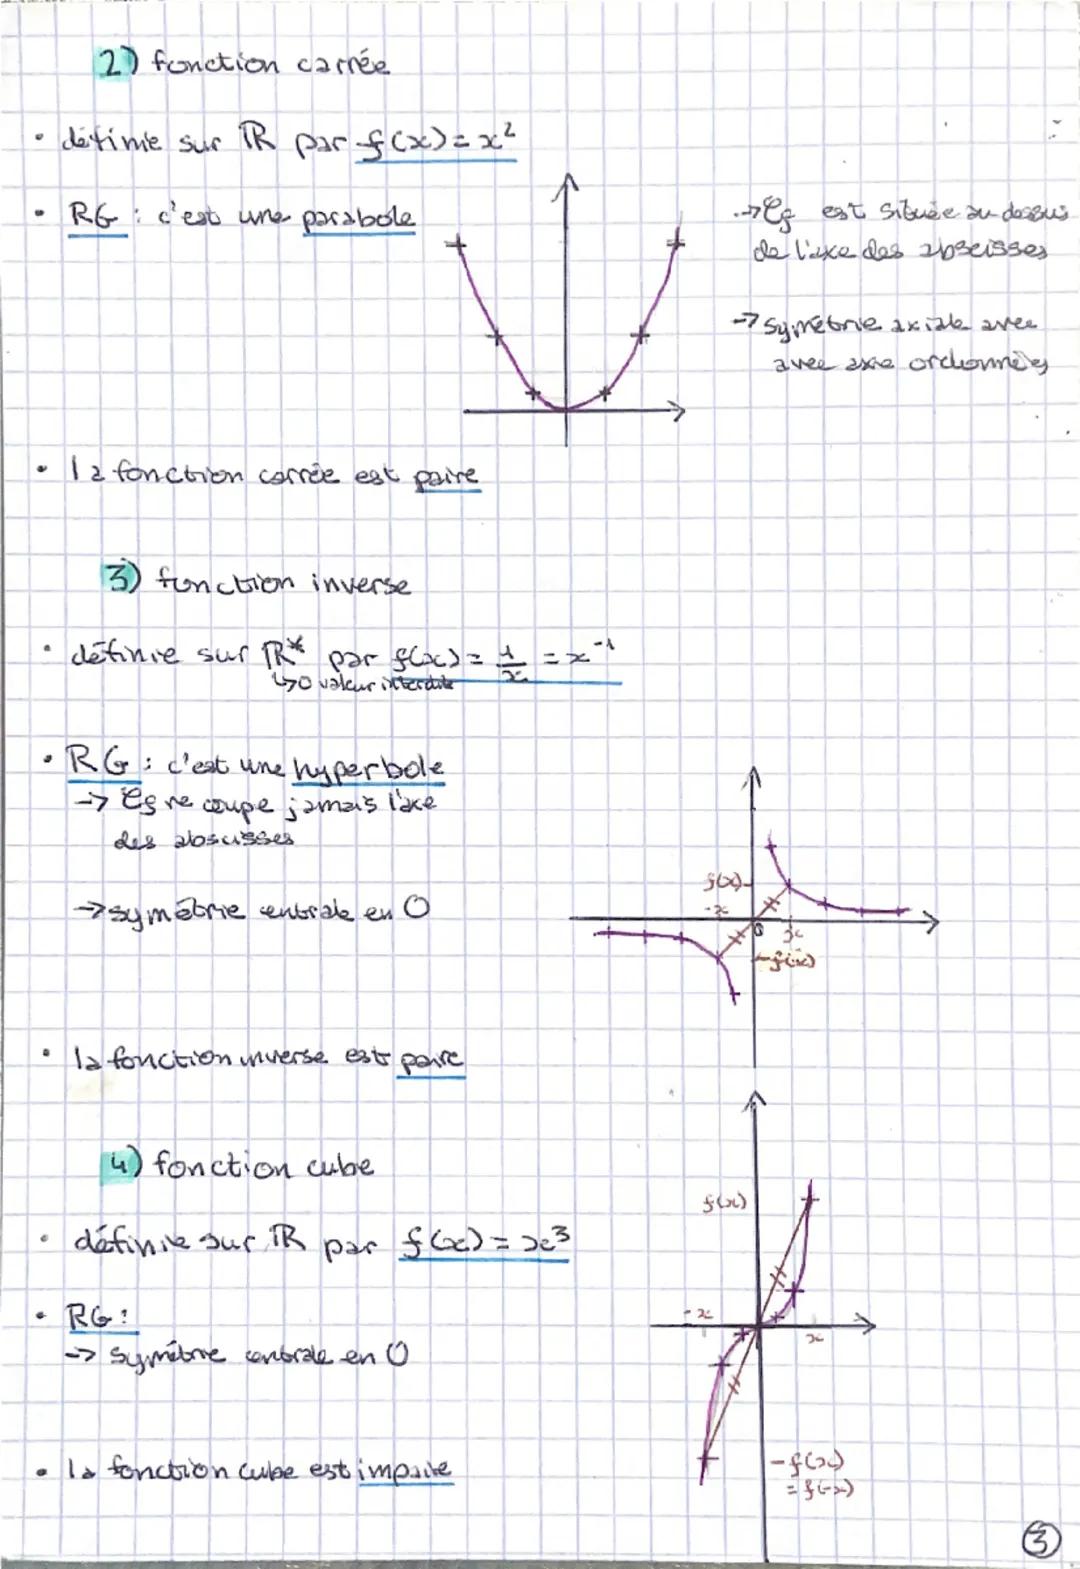 2) fonction carrée
• définie sur ℝ par f(x) = x²
• RG : c'est une parabole
→ Cf est située au dessus
de l'axe des abscisses
→ symétrie axiale avec
avec axe ordonnées
• la fonction carrée est paire
3) fonction inverse
• définie sur ℝ* par f(x) = 1/x = x⁻¹
↳ 0 valeur interdite
• RG : c'est une hyperbole
→ Cf ne coupe jamais l'axe
des abscisses
→ symétrie centrale en O
f(x)
-x
0
x
-f(x)
• la fonction inverse est paire
4) fonction cube
• définie sur ℝ par f(x) = x³
• RG :
→ symétrie centrale en O
f(x)
-x
x
-f(x)
= f(-x)
• la fonction cube est impaire
3